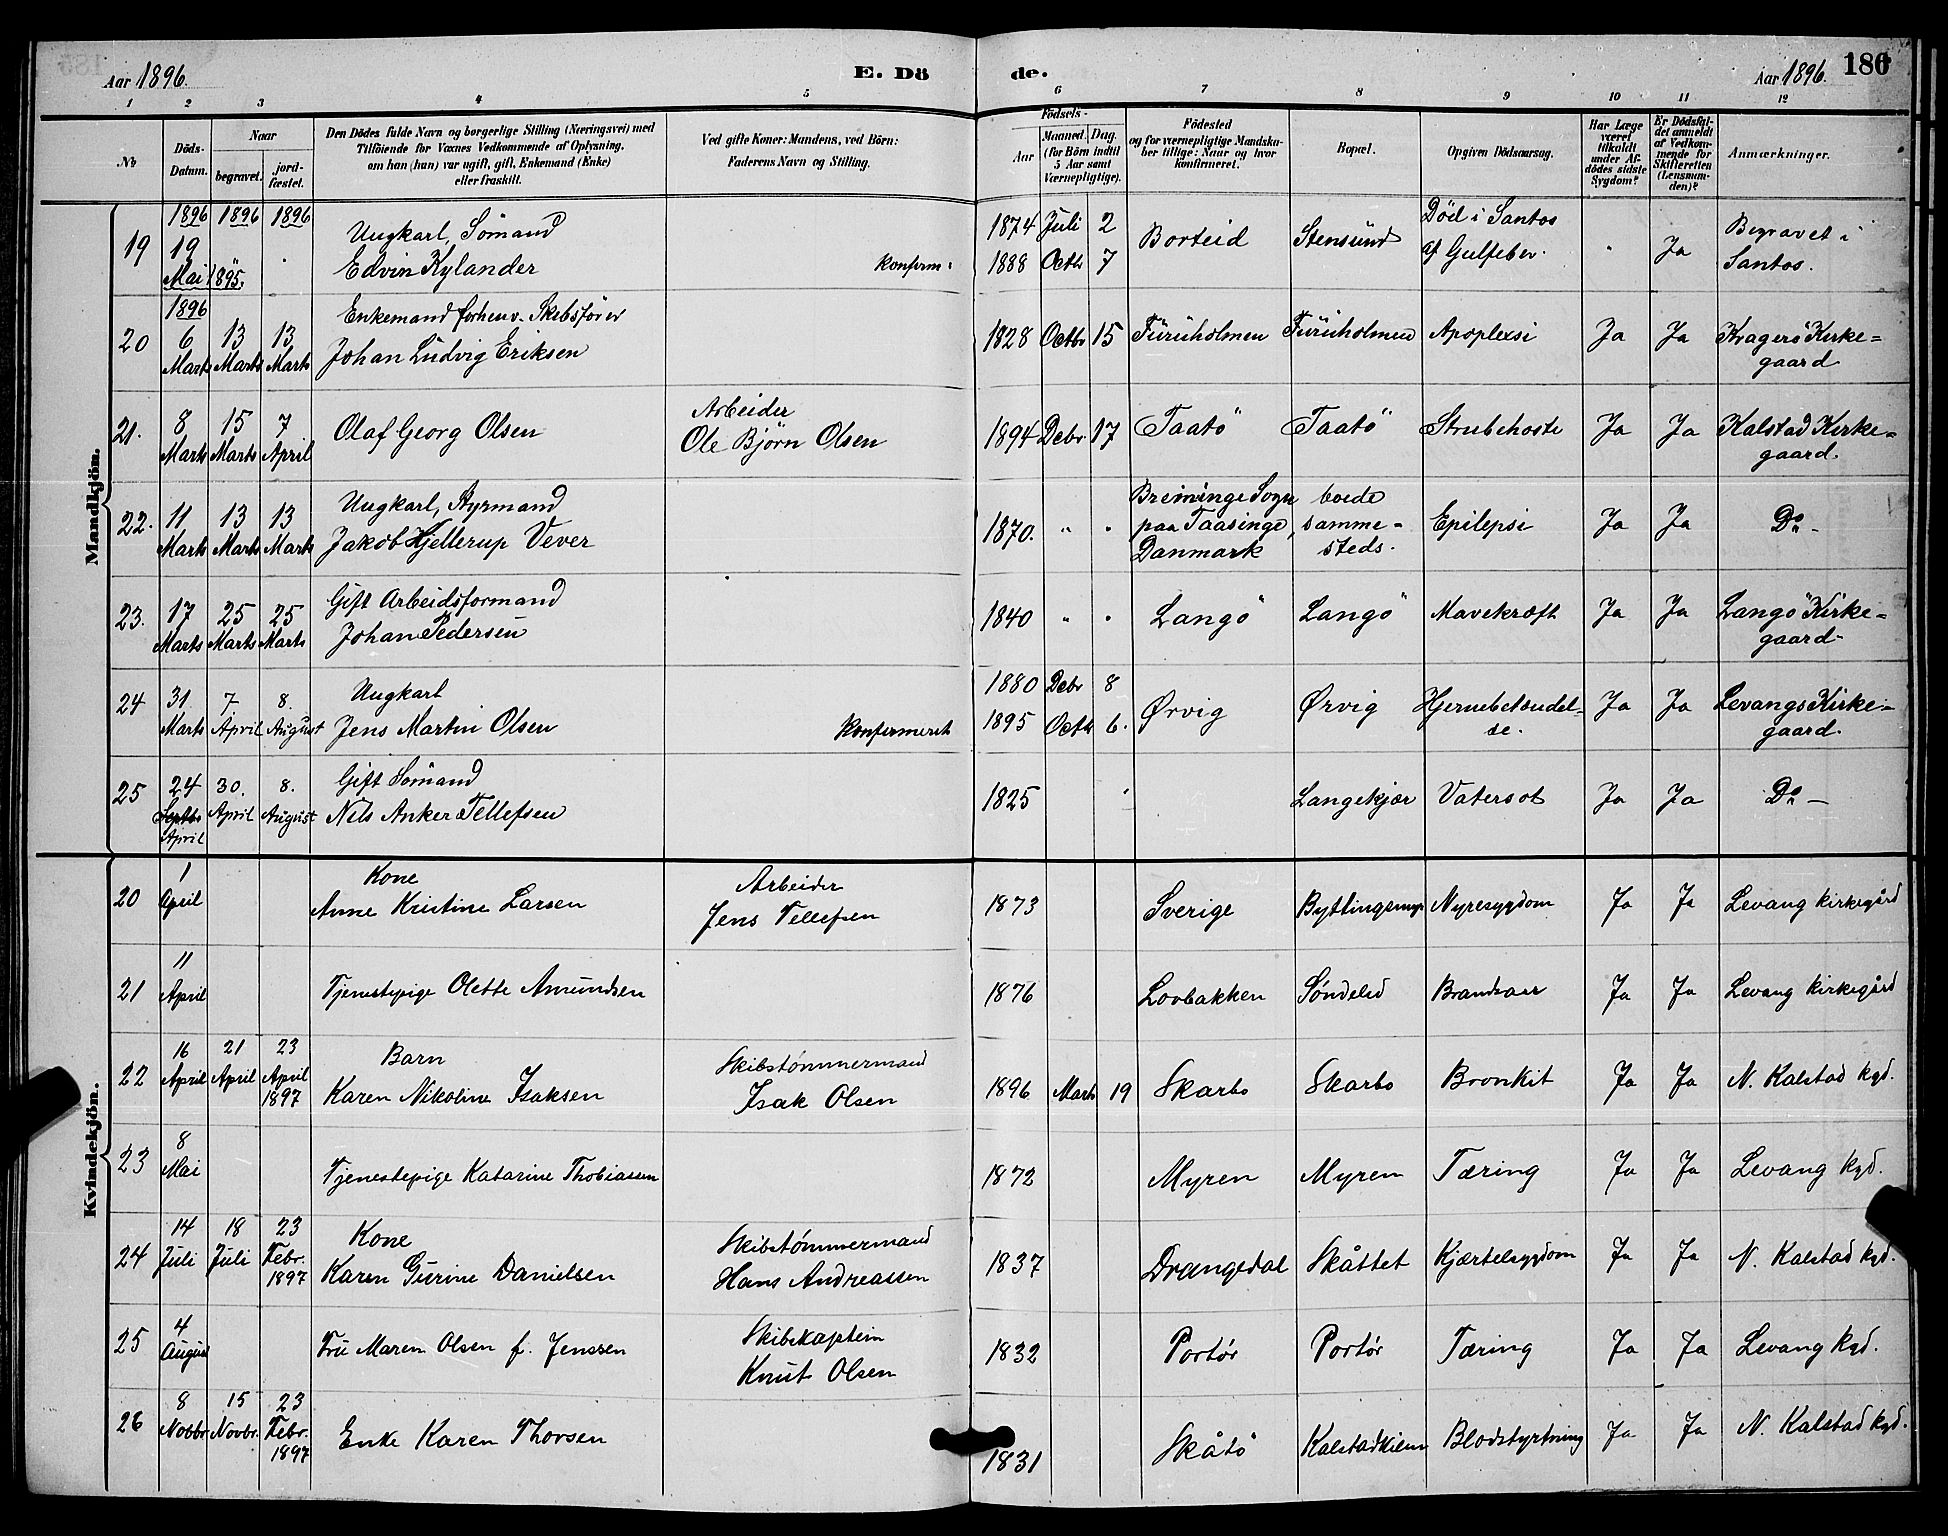 Aar 1896.
E. Dö
de.
Aar 1896.
186
1 2 3 4 5 6 7 8 9 10 11 12
No
Döds-
Datum.
Naar
begravet.
jord-
fæstet.
Den Dödes fulde Navn og borgerlige Stilling (Næringsvei) med
Tilföiende for Voxnes Vedkommende af Oplysning,
om han (hun) var ugift, gift, Enkemand (Enke)
eller fraskilt.
Ved gifte Koner: Mandens, ved Börn:
Faderens Navn og Stilling.
Födsels-
Aar
Maaned. Dag.
(for Börn indtil
5 Aar samt
Værnepligtige).
Födested
og for værnepligtige Mandska-
ber tillige: Naar og hvor
konfirmeret.
Bopæl.
Opgiven Dödsaarsag.
Har Læge
været
tilkaldt
under Af-
dödes sidste
Sygdom?
Er Dödsfal-
det anmeldt
af Vedkom-
mende for
Skifteretten
(Lensman-
den)?
Anmærkninger.
Mandkjön.
1896 1896 1896
19
19 Mai 1895.
Ungkarl, Sömand
Edvin Kylander
konfirm:
1874 Juli 2
1888 Octbr 7
Borteid
Stensund
Död i Santos
af Gulfeber.
"
Ja
Begravet i
Santos.
1896
20
6 Marts
13 Marts
13 Marts
Enkemand forhenv. Skibsförer
Johan Ludvig Eriksen
1828 Octbr 15
Furuholmen
Furuholmen
Apoplexi
Ja
Ja
Kragerö Kirke=
gaard
21.
8 Marts
15 Marts
7 April
Olaf Georg Olsen
Arbeider
Ole Björn Olsen
1894 Debr 17
Taatö
Taatö
Strubehoste
Ja
Ja
Kalstad Kirke=
gaard.
22.
11 Marts
13 Marts
13 Marts
Ungkarl, Styrmand
Jakob Hjellerup Vever
1870. " "
Breininge Sogn
paa Taasinge,
Danmark
boede
samme=
steds.
Epilepsi
Ja
Ja
Do -
23.
17 Marts
25 Marts
25 Marts
Gift Arbeidsformand
Johan Pedersen
1840 " "
Langö
Langö
Mavekræft
Ja
Ja
Langö Kirke=
gaard-
24
31 Marts
7. April
8. August
Ungkarl
Jens Martin Olsen
Konfirmeret
1880 Debr 8
1895 Octbr 6.
Ørvig
Ørvig
Hjernebetændel=
se.
Ja
Ja
Levangs Kirke=
gaard.
25
24 Septbr
April
30. April
8. August
Gift Sömand
Nils Anker Tellefsen
1825
Langekjær
Vatersot
Ja
Ja
Do -
Kvindekjön.
20
1 April
Kone
Anne Kristine Larsen
Arbeider
Jens Tellefsen
1873
Sverige
Byttingsmyr
Nyresygdom
Ja
Ja
Levang kirkegård
21
11 April
Tjenestepige Olette Amundsen
1876
Lovbakken
Søndeled
Brandsaar
Ja
Ja
Levang kirkegård
22
16 April
21 April
23 April 1897
Barn
Karen Nikoline Isaksen
Skibstømmermand
Isak Olsen
1896 Marts 19
Skarbo
Skarbo
Bronkit
Ja
Ja
N. Kalstad kgd.
23
8 Mai
Tjenestepige Katarine Thobiassen
1872
Myren
Myren
Tæring
Ja
Ja
Levang kgd.
24
14 Juli
18 Juli
23 Febr. 1897
Kone
Karen Gurine Danielsen
Skibstømmermand
Hans Andreassen
1837
Drangedal
Skåttet
Kjærtelsygdom
Ja
Ja
N. Kalstad kgd.
25
4 August
Fru Maren Olsen f. Jenssen
Skibskaptein
Knut Olsen
1832
Portør
Portør
Tæring
Ja
Ja
Levang kgd.
26
8 Novbr
15 Novbr.
23 Febr. 1897
Enke Karen Thorsen
1831
Skåtø
Kalstadkilen
Blodstyrtning
Ja
Ja
N. Kalstad kgd.